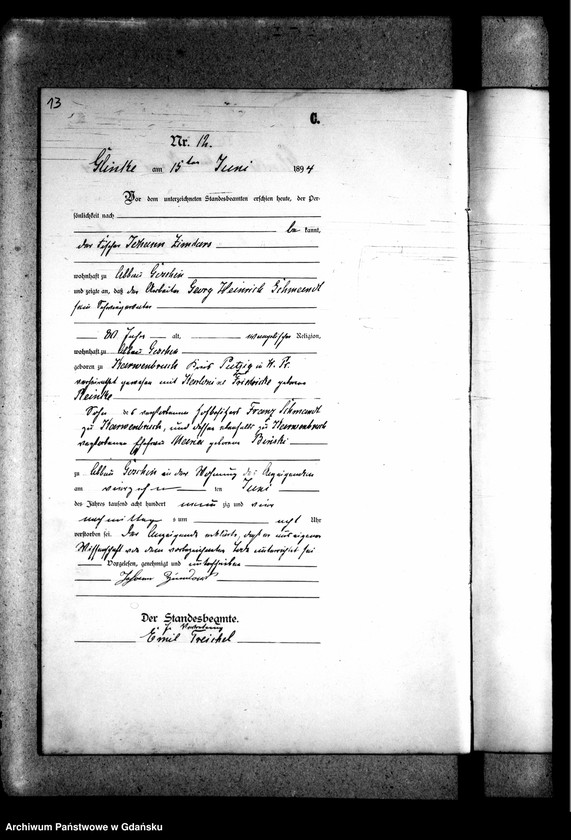 13
C.
Nr. 12.
Glinke am 15ten Juni 1894
Vor dem unterzeichneten Standesbeamten erschien heute, der Per-
sönlichkeit nach
be kannt,
der Johann
wohnhaft zu Abbau Goschin
und zeigte an, daß der Arbeiter Georg Heinrich Schmandt
sein Schwiegervater
80 Jahre alt, evangelischer Religion,
wohnhaft zu Abbau Goschin
geboren zu Karwenbruch Kreis Putzig in W. Pr.
verheirathet gewesen mit Friedericke geborene
Reinke
Sohn des verstorbenen Hofbesitzers Franz Schmandt
zu Karwenbruch, und dessen ebenfalls zu Karwenbruch
verstorbene Ehefrau Maria geborene
zu Abbau Goschin in der Wohnung des Anzeigenden
am vierzehn ten Juni
des Jahres tausend acht hundert neun zig und vier
nachmittag s um acht Uhr
verstorben sei. Der Anzeigende erklärte, daß er aus eigener
Wissenschaft von dem vorbezeichneten Tode unterrichtet sei
Vorgelesen, genehmigt und unterschrieben
Johann
Der Standesbeamte.
In Vertretung
Emil Treichel
Archiwum Państwowe w Gdańsku